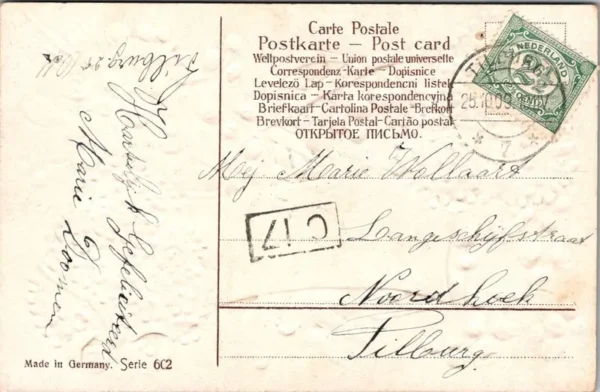 Carte Postale
Postkarte – Post card
Weltpostverein – Union postale universelle
Correspondenz-Karte – Dopisnice
Levelező Lap – Korespondencni listek
Dopisnica – Karta korespondencyjna
Briefkaart – Cartolina Postale – Brefkort
Brevkort – Tarjeta Postal – Cartão postal
ОТКРЫТОЕ ПИСЬМО.
NEDERLAND
TILBURG
25.10.09
7
Tilburg
Hartelijk Gefeliciteerd
Marie
Mej Marie Wollaars
C 17
Langeschijfstraat
Noordhoek
Tilburg
Made in Germany. Serie 602